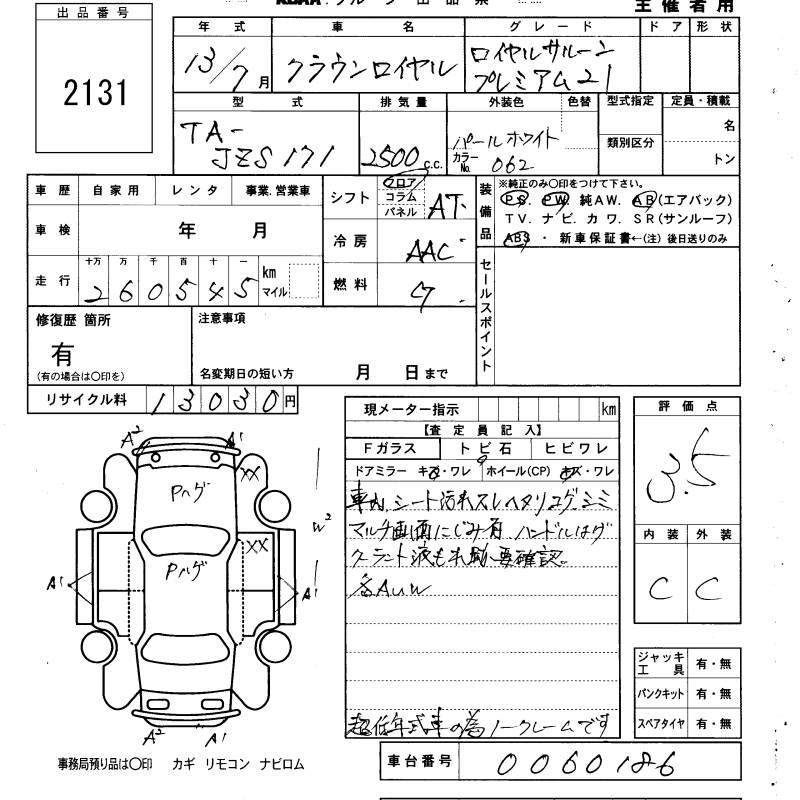 出品番号
2131
主催者用
年式 車名 グレード ドア 形状
13/7月 クラウンロイヤル ロイヤルサルーン
プレミアム21
型式 排気量 外装色 色替 型式指定 定員・積載
TA-
JZS171 2500 c.c. パールホワイト
カラーNo. 062
類別区分 名
トン
車歴 自家用 レンタ 事業.営業車
車検 年 月
走行 十万 万 千 百 十 一
260545 km マイル
シフト フロア コラム パネル AT
冷房 AAC
燃料 G
装備品 ※純正のみ〇印をつけて下さい。
PS. PW. 純AW. AB(エアバック)
TV. ナビ. カワ. SR(サンルーフ)
ABS ・ 新車保証書←(注) 後日送りのみ
セールスポイント
修復歴 箇所
有
(有の場合は〇印を)
注意事項
名変期日の短い方 月 日まで
リサイクル料 13030円
現メーター指示 km
【査定員記入】
Fガラス トビ石 ヒビワレ
ドアミラー キズ・ワレ ホイール(CP) キズ・ワレ
車内、シート汚れスレヘタリコゲシミ
マルチ画面にじみ有 ハンドルハゲ
クーラント液もれ跡、要確認。
各AUW
超低年式車の為ノークレームです
評価点
3.5
内装 外装
C C
ジャッキ工具 有・無
パンクキット 有・無
スペアタイヤ 有・無
車台番号 0060186
A2 A1
XX
Pハゲ
W2
XX
Pハゲ
A1 A1
A2 A1
事務局預り品は〇印 カギ リモコン ナビロム